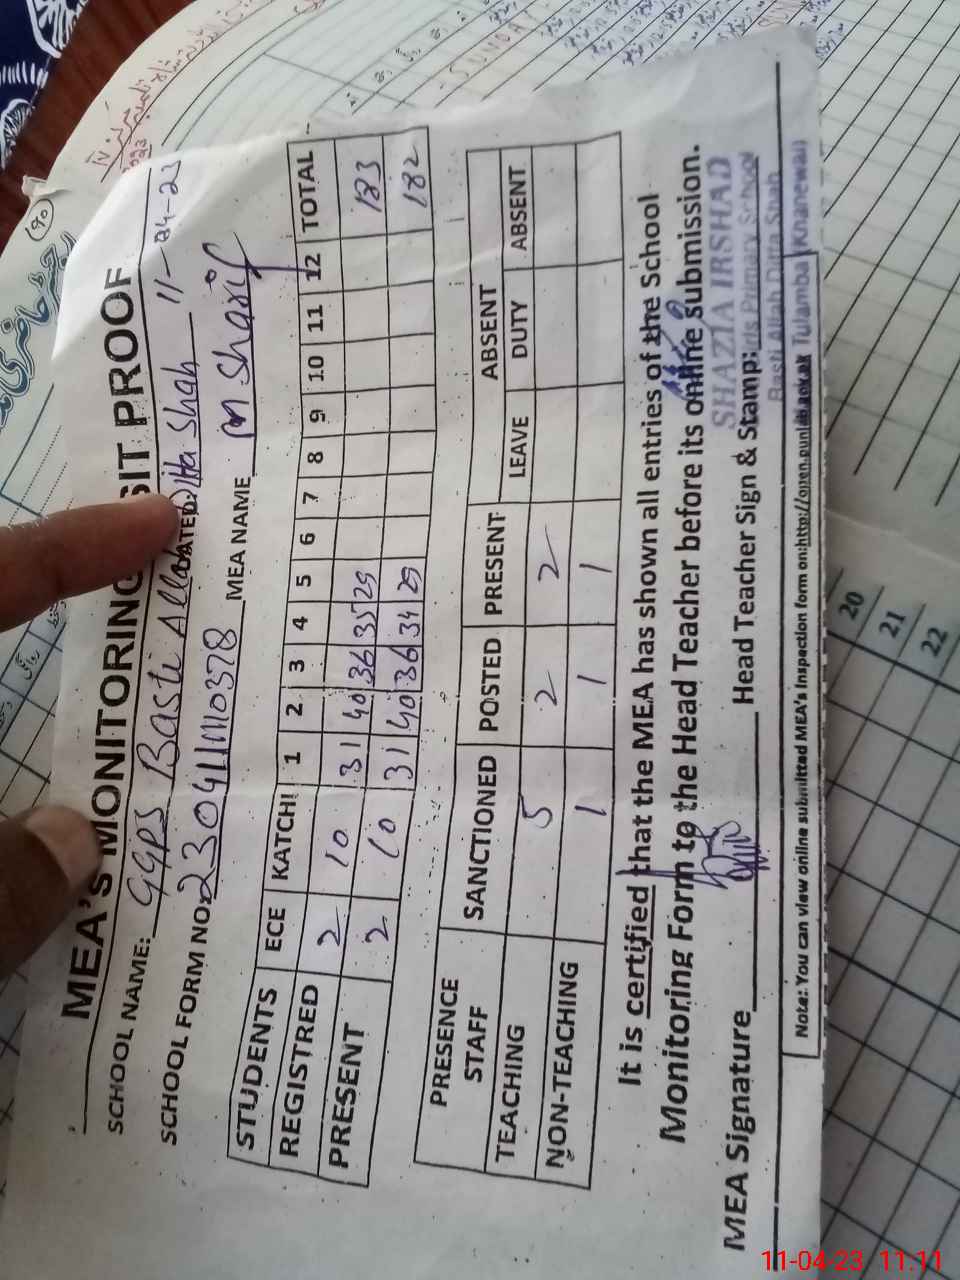 MEA'S MONITORING VISIT PROOF
SCHOOL NAME: GGPS Basti Allah Ditta Shah
SCHOOL FORM NO: 2304111110378 DATED: 11-04-23
MEA NAME M Sharif
STUDENTS ECE KATCHI 1 2 3 4 5 6 7 8 9 10 11 12 TOTAL
REGISTRED 2 10 31 40 36 35 29 183
PRESENT 2 10 31 40 36 34 29 182
PRESENCE STAFF SANCTIONED POSTED PRESENT ABSENT
LEAVE DUTY ABSENT
TEACHING 5 2 2
NON-TEACHING 1 1 1
It is certified that the MEA has shown all entries of the School
Monitoring Form to the Head Teacher before its online submission.
MEA Signature Head Teacher Sign & Stamp:
SHAZIA IRSHAD
Girls Primary School
Basti Allah Ditta Shah
Tulamba Khanewal
Note: You can view online submitted MEA's inspection form on:http://open.punjab.gov.pk
20
21
22
11-04-23 11:11